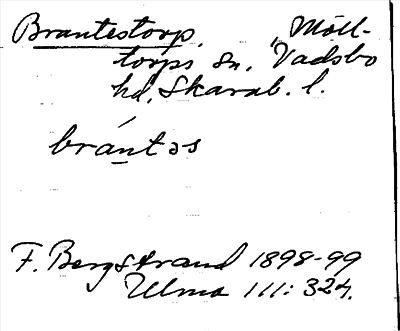 Brantestorp, Möll-
torps sn, Vadsbo
hd, Skarab. l.
brántəs
F. Bergstrand 1898-99
Ulma 111: 324.